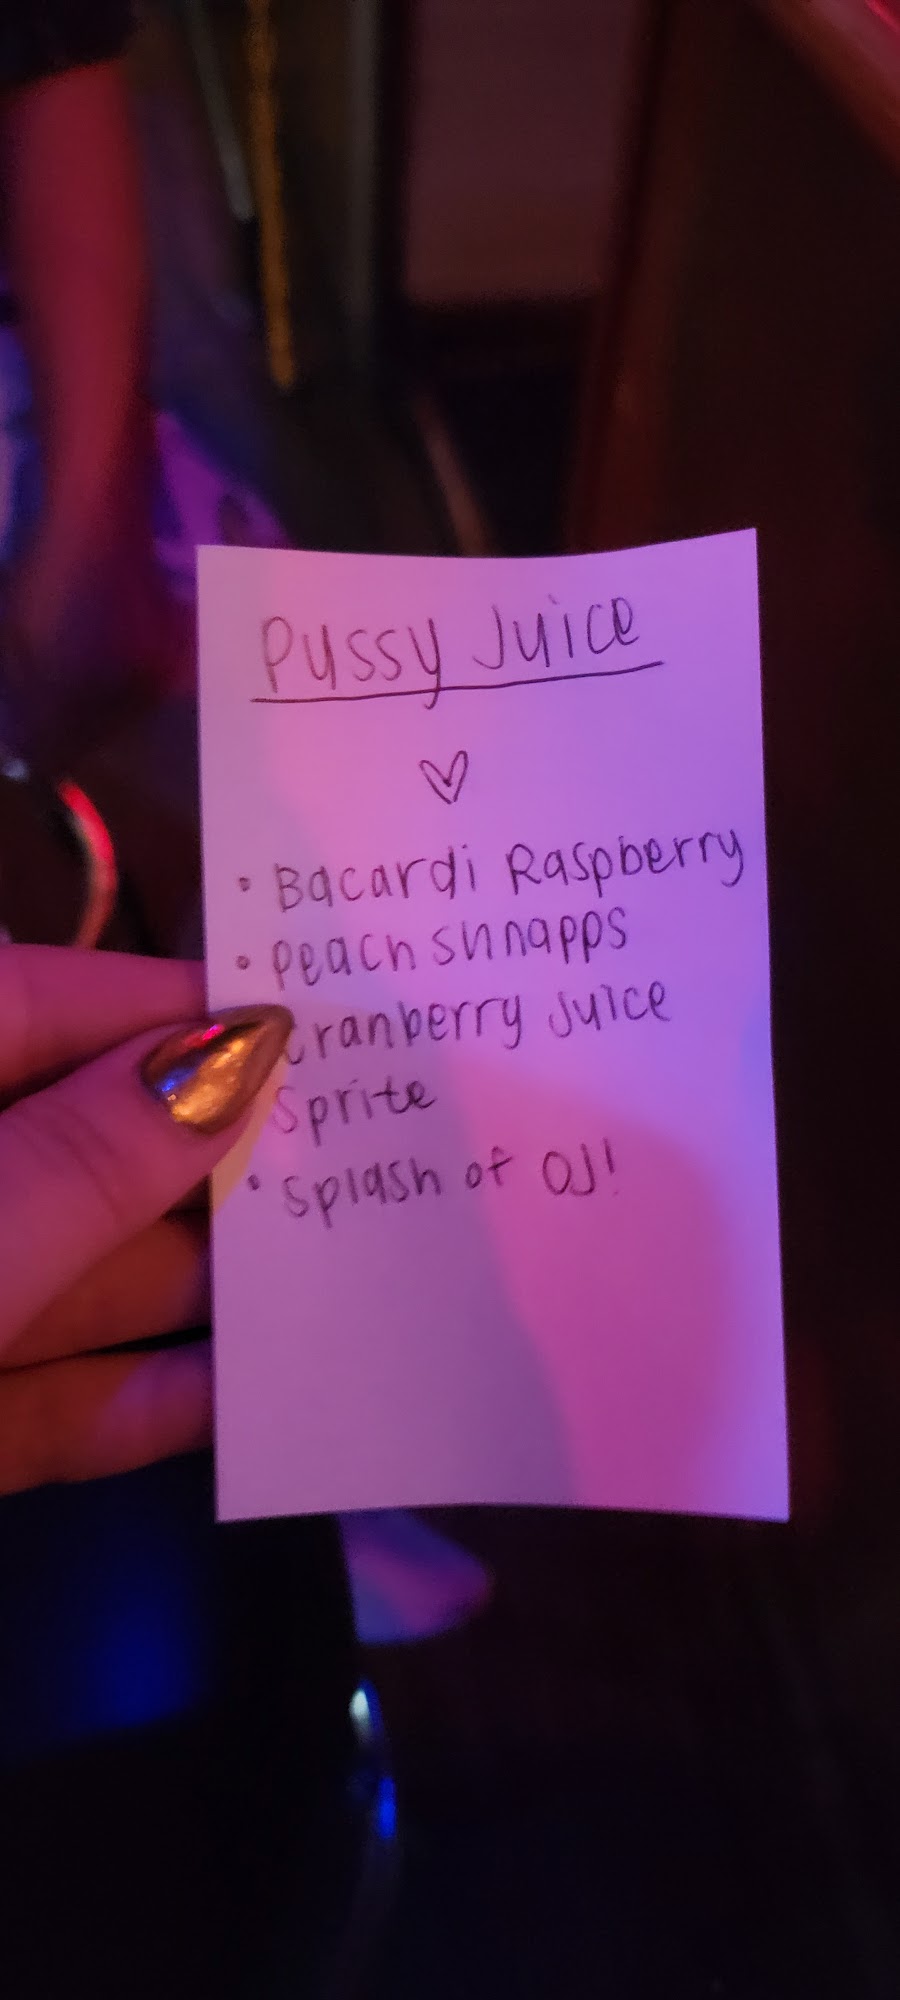 Pussy Juice
♡
• Bacardi Raspberry
• Peach Shnapps
Cranberry Juice
Sprite
• Splash of OJ!